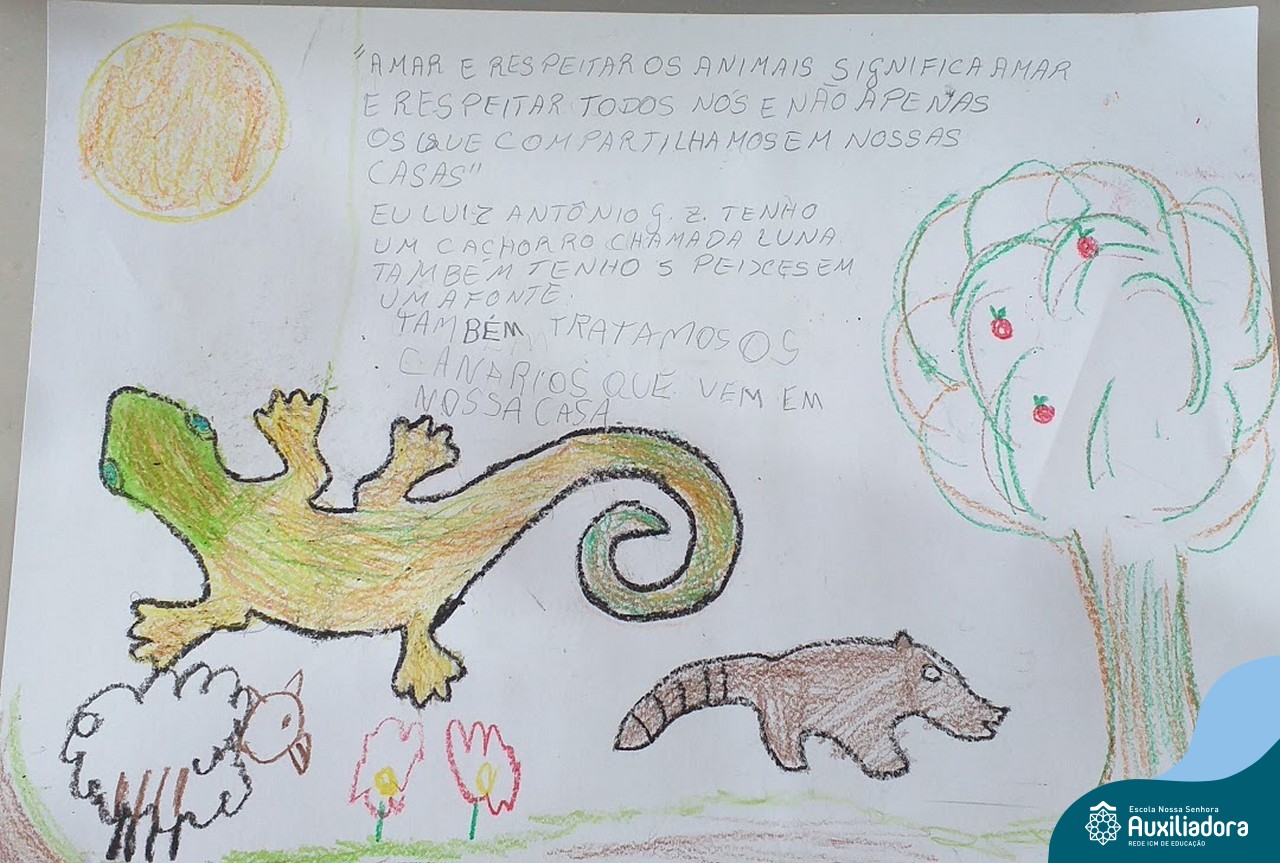 "AMAR E RESPEITAR OS ANIMAIS SIGNIFICA AMAR
E RESPEITAR TODOS NÓS E NÃO APENAS
OS QUE COMPARTILHAMOS EM NOSSAS
CASAS"
EU LUIZ ANTÔNIO G. Z. TENHO
UM CACHORRO CHAMADA LUNA.
TAMBÉM TENHO 5 PEIXES EM
UMA FONTE.
TAMBÉM TRATAMOS OS
CANARIOS QUE VEM EM
NOSSA CASA.
Escola Nossa Senhora
Auxiliadora
REDE ICM DE EDUCAÇÃO